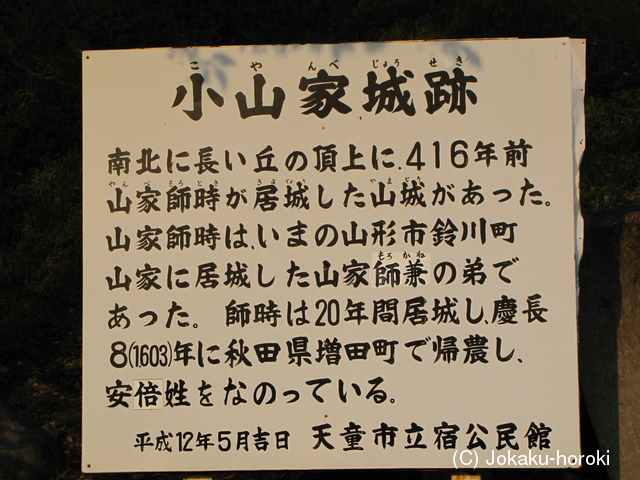 こ や んべ じょう せき
小山家城跡
南北に長い丘の頂上に、416年前
やんべ もろとき きょじょう やまじろ
山家師時が居城した山城があった。
山家師時は、いまの山形市鈴川町
もろ かね
山家に居城した山家師兼の弟で
あった。師時は20年間居城し、慶長
8(1.603)年に秋田県増田町で帰農し、
安倍姓をなのっている。
平成12年5月吉日 天童市立宿公民館
(C) Jokaku-horoki